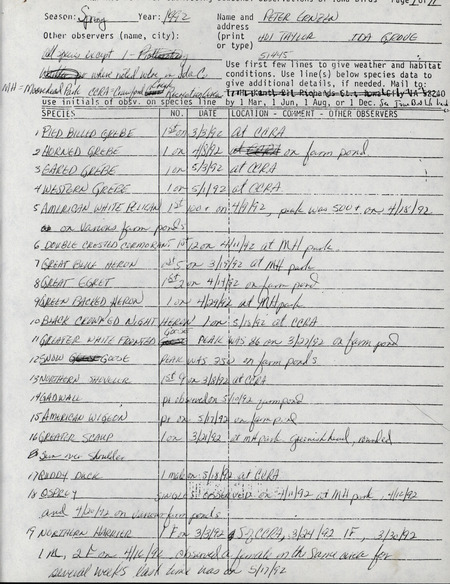 Season: Spring Year: 1992 Name and PETER
Other observers (name, city): address
(print HOI TAYLOR IDA GROVE
or type) 51445
all species except 1-
where noted in Ida Co
Use first few lines to give weather and habitat
conditions. Use line(s) below species data to
give additional details, if needed. Mail to:
MH = Moorehead Park CCRA = Crawford Creek Recreation Area
use initials of obsv. on species line by 1 Mar, 1 Jun, 1 Aug, or 1 Dec.
SPECIES NO. DATE LOCATION - COMMENT - OTHER OBSERVERS
1 PIED BILLED GREBE 1st on 3/3/92 at CCRA
2 HORNED GREBE 1 on 4/8/92 on farm pond
3 EARED GREBE 1 on 5/3/92 at CCRA
4 WESTERN GREBE 1 on 5/1/92 at CCRA
5 AMERICAN WHITE PELICAN 1st 100+ on 4/9/92, peak was 500+ on 4/18/92
on various farm ponds
6 DOUBLE CRESTED CORMORANT 1st 12 on 4/11/92 at MH park
7 GREAT BLUE HERON 1st 5 on 3/19/92 at MH park
8 GREAT EGRET 1st 2 on 4/17/92 on farm pond
9 GREEN BACKED HERON 1 on 4/29/92 at MH park
10 BLACK CROWNED NIGHT HERON 1 on 5/13/92 at CCRA
11 GREATER WHITE FRONTED GOOSE PEAK WAS 86 on 3/27/92 on farm pond
12 SNOW GOOSE PEAK WAS 250 on farm ponds
13 NORTHERN SHOVELER 1st 9 on 3/8/92 at CCRA
14 GADWALL pr observed on 5/10/92 farm pond
15 AMERICAN WIGEON pr on 5/17/92 on farm pond
16 GREATER SCAUP 1 on 3/21/92 at MH park greenish head, rounded
17 RUDDY DUCK 1 male on 5/18/92 at CCRA
18 OSPREY SINGLES OBSERVED on 4/11/92 at MH park, 4/12/92
and 4/20/92 on various farm ponds
19 NORTHERN HARRIER 1F on 3/3/92 CCRA, 3/24/92 1F, 3/30/92
1M, 2F on 4/16/92, observed a female in the same area for
several weeks last time was on 5/17/92